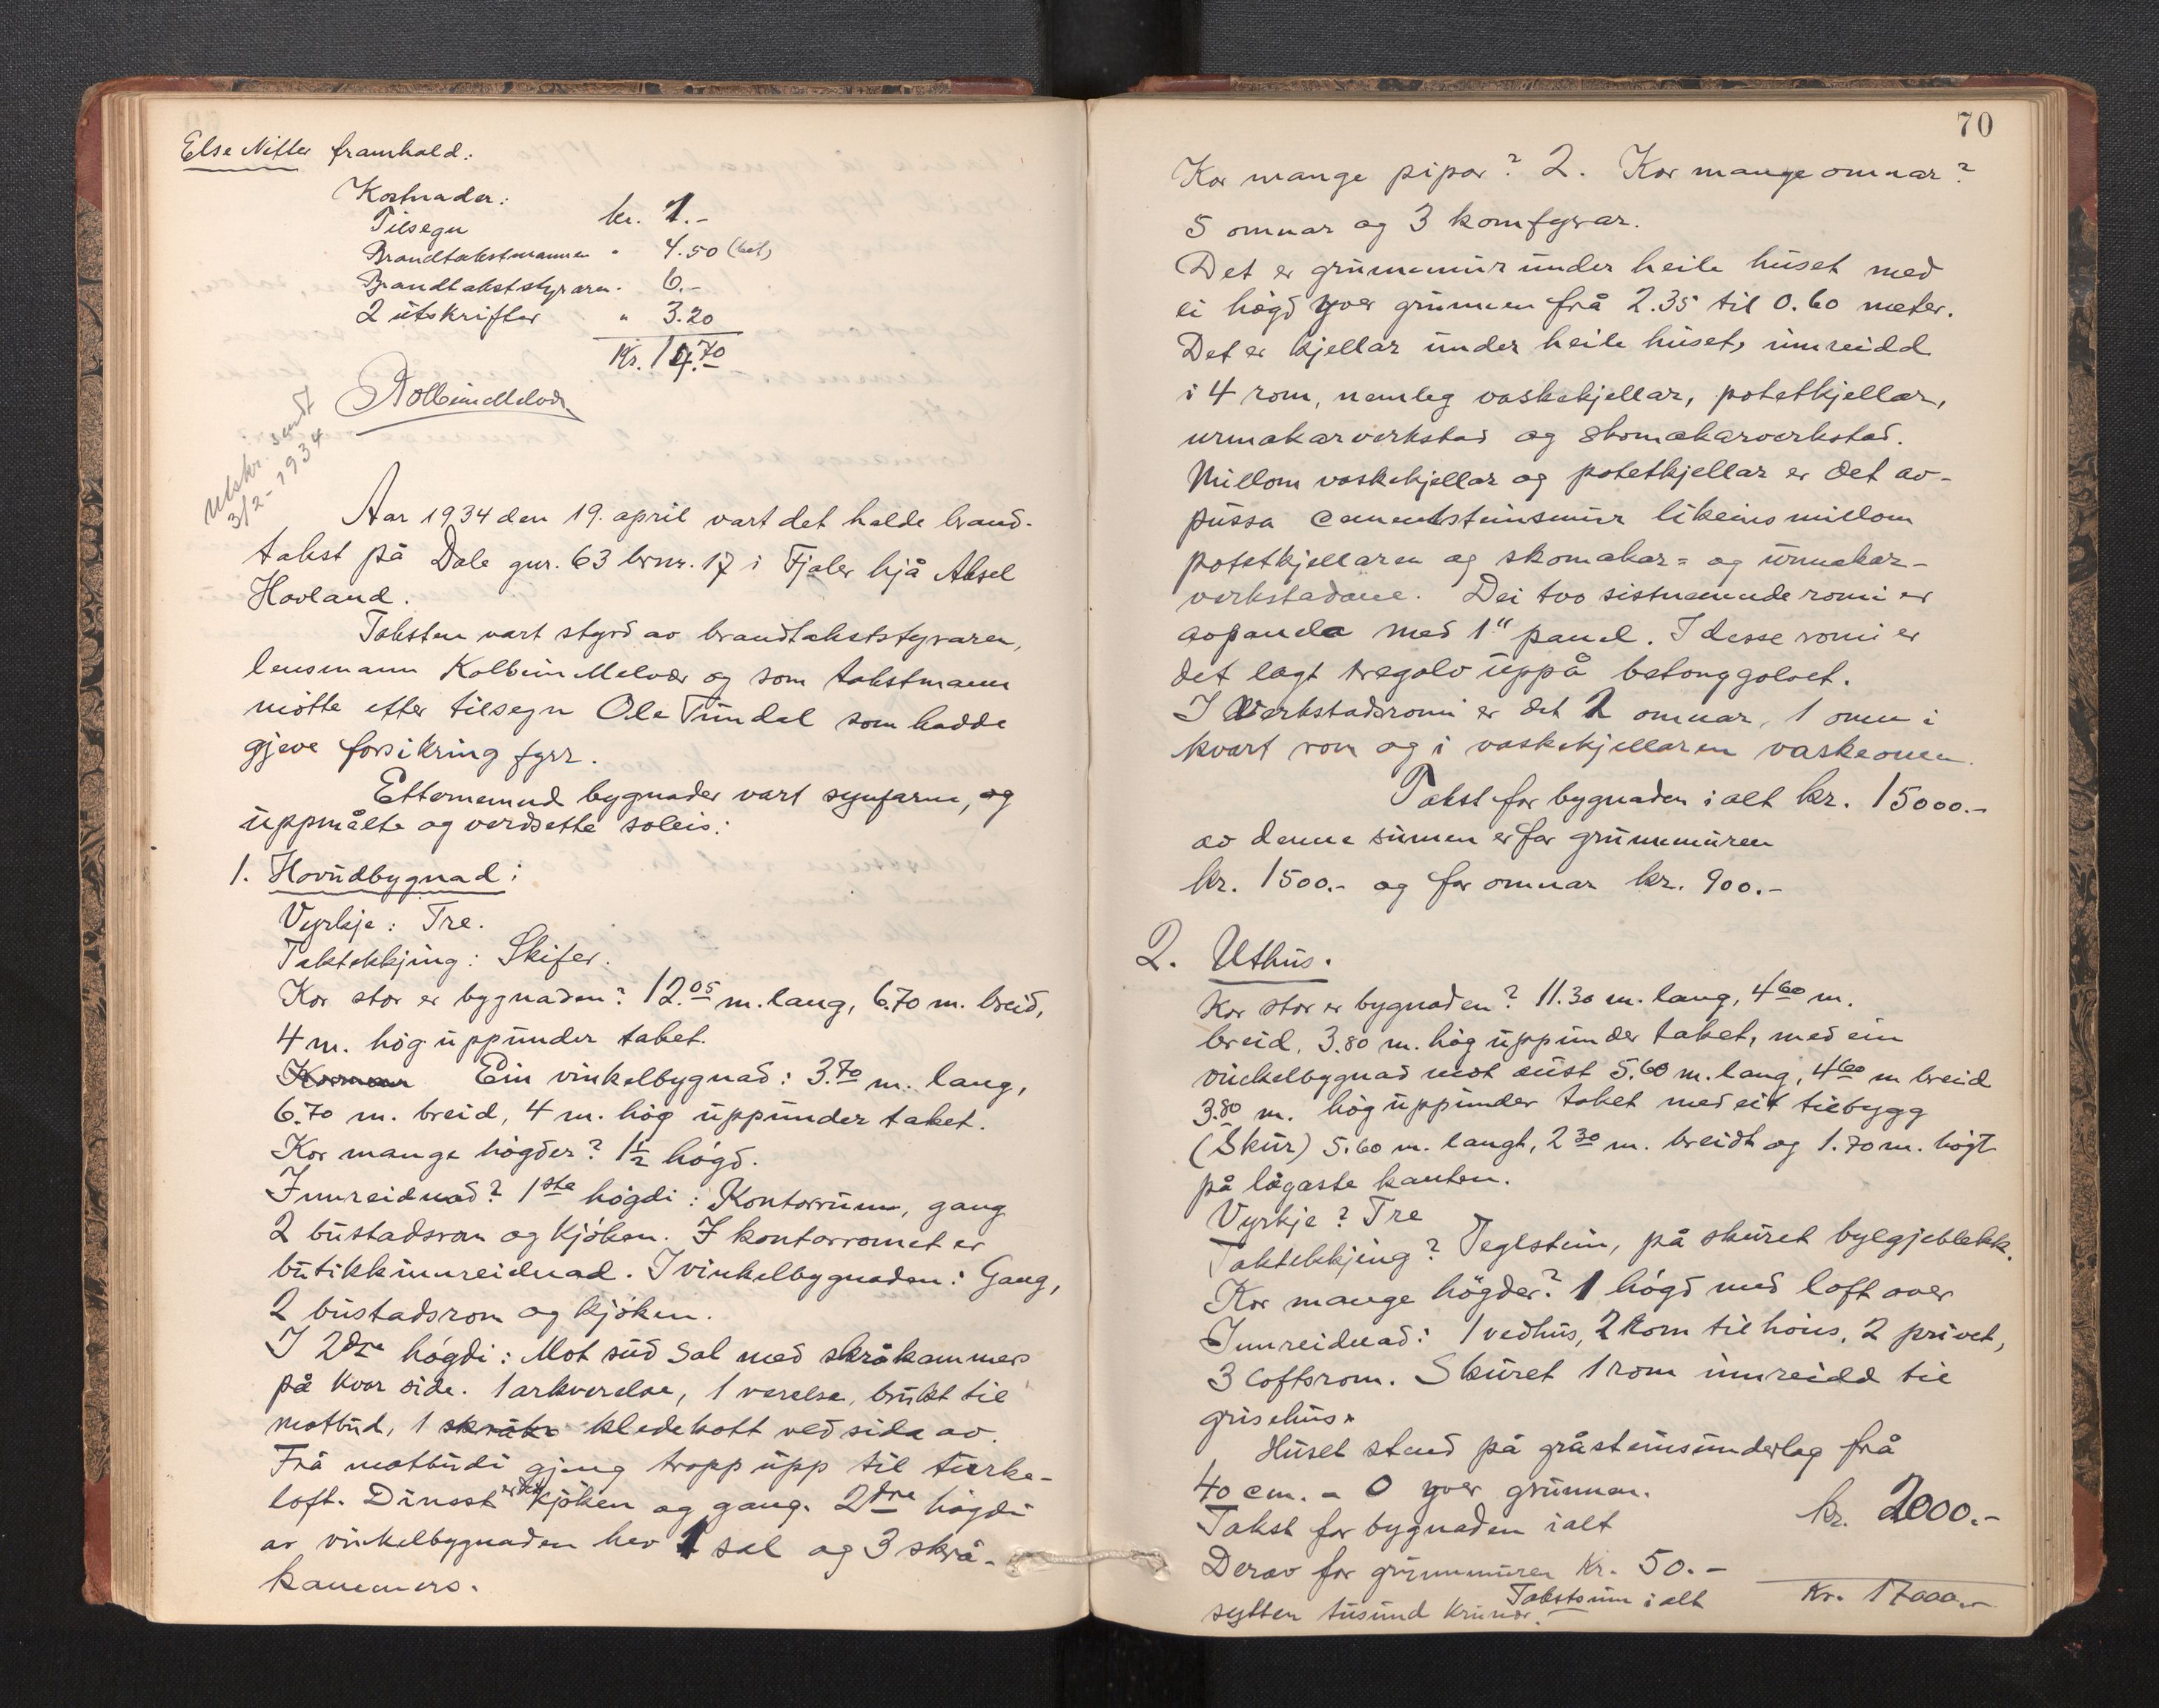 Else Nitter framhald:
Kostnader:
Tilsegn kr. 1.-
Brandtakstmannen " 4.50 (bet)
Brandtakststyraren " 6.-
2 utskrifter " 3.20
Kr. 14.70
Kolbein Melvær
Utskr. sendt
3/2-1934
Aar 1934 den 19. april vart det halde brand-
takst på Dale gnr. 63 brnr. 17 i Fjaler hjå Aksel
Hovland.
Taksten vart styrd av brandtakststyraren,
lensmann Kolbein Melvær og som takstmann
møtte etter tilsegn Ole Tundal som hadde
gjeve forsikring fyrr.
Etternemnd bygnader vart synfarne, og
uppmålte og verdsette soleis:
1. Hovudbygnad:
Vyrkje: Tre.
Taktekkjing: Skifer.
Kor stor er bygnaden? 12.05 m. lang, 6.70 m. breid,
4 m. høg uppunder taket.
Ein vinkelbygnad: 3.70 m. lang,
6.70 m. breid, 4 m. høg uppunder taket.
Kor mange høgder? 1 1/2 høgd.
Innreidnad? 1ste høgdi: Kontorrum, gang
2 bustadsrom og kjøken. I kontorromet er
butikkinnreidnad. I vinkelbygnaden: Gang,
2 bustadsrom og kjøken.
I 2dre høgdi: Mot sud sal med skråkammers
på kvar side. 1 arkverelse, 1 verelse, brukt til
matbud, 1 skråk kledekott ved sida av.
Frå matbudi gjeng tropp upp til turke-
loft. Dinest er det kjøken og gang. 2dre høgdi
av vinkelbygnaden hev 1 sal og 3 skrå-
kammers.
70
Kor mange pipor? 2. Kor mange omnar?
5 omnar og 3 komfyrar.
Det er grunnmur under heile huset med
ei høgd yver grunnen frå 2.35 til 0.60 meter.
Det er kjellar under heile huset, innreidd
i 4 rom, nemleg vaskekjellar, potetkjellar,
urmakarverkstad og skomakarverkstad.
Millom vaskekjellar og potetkjellar er det av-
pussa cementsteinsmur likeins millom
potetkjellaren og skomakar= og urmakar-
verkstadane. Dei two sistnemnde romi er
avpanela med 1" panel. I desse romi er
det lagt tregolv uppå betonggolvet.
I verkstadsromi er det 2 omnar, 1 omn i
kvart rom og i vaskekjellaren vaskeomn.
Takst for bygnaden i alt kr. 15000.-
av denne summen er for grunnmuren
kr. 1500.- og for omnar kr. 900.-
2. Uthus.
Kor stor er bygnaden? 11.30 m. lang, 4.60 m.
breid, 3.80 m. høg uppunder taket, med ein
vinkelbygnad mot aust 5.60 m. lang, 4.60 m breid
3.80 m. høg uppunder taket med eit tilbygg
(Skur) 5.60 m. langt, 2.30 m. breidt og 1.70 m. høgt
på lågaste kanten.
Vyrkje? Tre
Taktekkjing? Teglstein, på skuret bylgjeblekk.
Kor mange høgder? 1 høgd med loft over
Innreidnad: 1 vedhus, 2 rom til høns, 2 privet,
3 loftsrom. Skuret 1 rom innreidd til
grisehus.
Huset stend på gråsteinsunderlag frå
40 cm. - 0 yver grunnen.
Takst for bygnaden ialt kr. 2000.-
Derav for grunnmuren kr. 50.-
Takstsum i alt Kr. 17000.-
sytten tusund krunor.